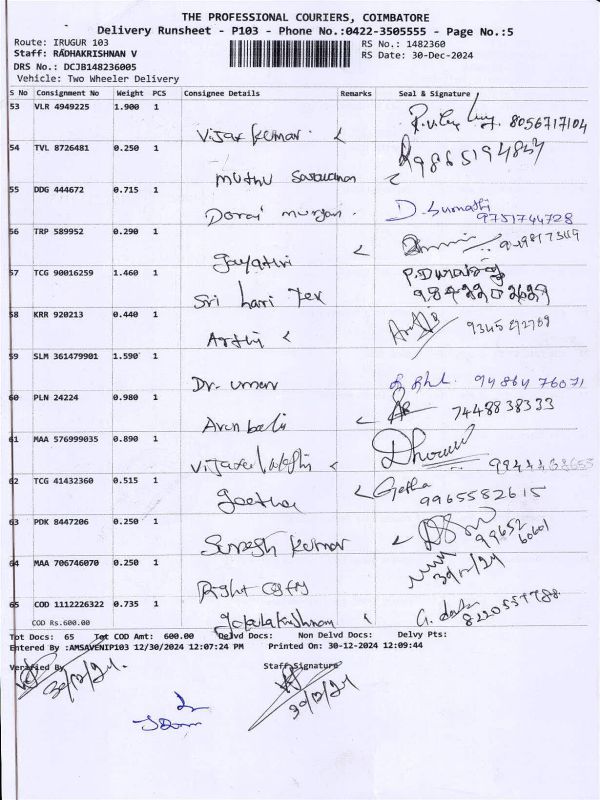 THE PROFESSIONAL COURIERS, COIMBATORE
Delivery Runsheet - P103 - Phone No.:0422-3505555 - Page No.:5
Route: IRUGUR 103
RS No.: 1482360
Staff: RADHAKRISHNAN V
RS Date: 30-Dec-2024
DRS No.: DCJB148236005
Vehicle: Two Wheeler Delivery
S No Consignment No Weight PCS Consignee Details Remarks Seal & Signature
53 VLR 4949225 1.900 1
Vijay Kumar 8056717104
54 TVL 8726481 0.250 1
Muthu Saravanan
55 DDG 444672 0.715 1
Dorai murgan. D. Sumathi
9751744728
56 TRP 589952 0.290 1
Gayathri
57 TCG 90016259 1.460 1
Sri hari Tex
58 KRR 920213 0.440 1
Arthi
59 SLM 361479901 1.590 1
Dr. uman 94864 76071
60 PLN 24224 0.980 1
7448838333
61 MAA 576999035 0.890 1
62 TCG 41432360 0.515 1
Geetha Geetha
9965582615
63 PDK 8447206 0.250 1
Suresh Kumar 99652
60601
64 MAA 706746070 0.250 1
Right 30/12/24
65 COD 1112226322 0.735 1
COD Rs.600.00 Gopalakrishnan
Tot Docs: 65 Tot COD Amt: 600.00 Delvd Docs: Non Delvd Docs: Delvy Pts:
Entered By :AMSAVENIP103 12/30/2024 12:07:24 PM Printed On: 30-12-2024 12:09:44
Verified By Staff Signature
30/12/24. 30/12/24